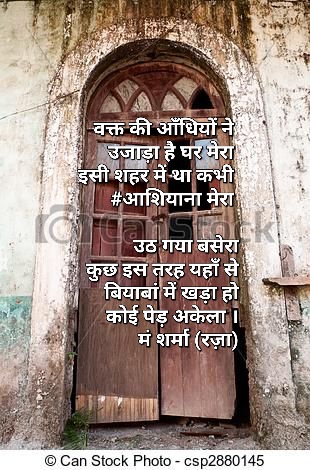 वक्त की आँधियों ने
उजाड़ा है घर मेरा
इसी शहर में था कभी
#आशियाना मेरा
उठ गया बसेरा
कुछ इस तरह यहाँ से
बियाबां में खड़ा हो
कोई पेड़ अकेला ।
मं शर्मा (रज़ा)
© Can Stock Photo
© Can Stock Photo - csp2880145